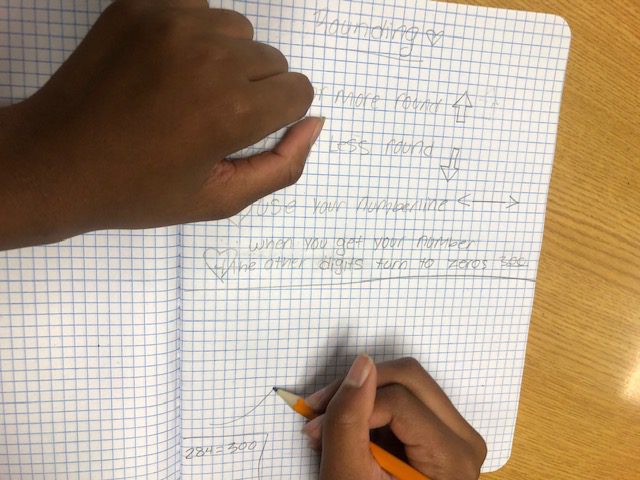 Rounding
more round
Less round
use your numberline
when you get your number
the other digits turn to zeros 300
284=300